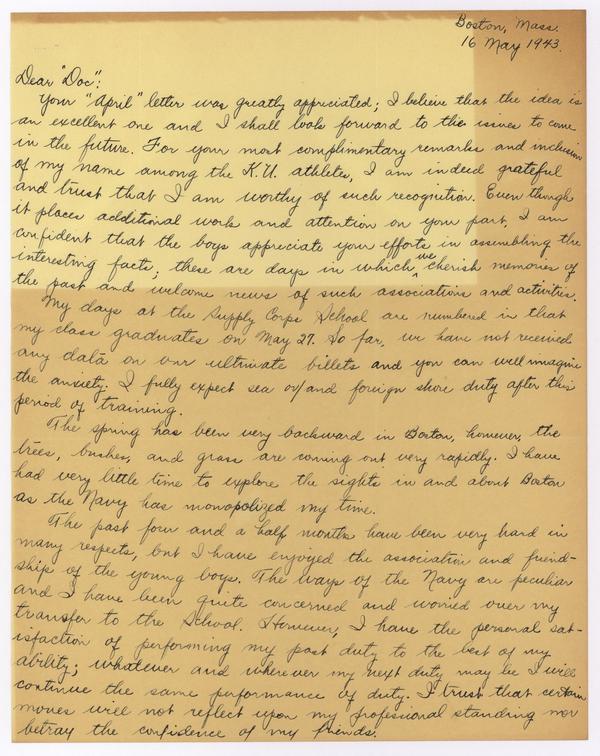 Boston, Mass.
16 May 1943.
Dear "Doc":
Your "April" letter was greatly appreciated; I believe that the idea is
an excellent one and I shall look forward to the issues to come
in the future. For your most complimentary remarks and inclusion
of my name among the K.U. athletes, I am indeed grateful
and trust that I am worthy of such recognition. Even though
it places additional work and attention on your part, I am
confident that the boys appreciate your efforts in assembling the
interesting facts; these are days in which we cherish memories of
the past and welcome news of such associations and activities.
My days at the Supply Corps School are numbered in that
my class graduates on May 27. So far, we have not received
any data on our ultimate billets and you can well imagine
the anxiety. I fully expect sea or/and foreign shore duty after this
period of training.
The spring has been very backward in Boston, however, the
trees, bushes, and grass are coming out very rapidly. I have
had very little time to explore the sights in and about Boston
as the Navy has monopolized my time.
The past four and a half months have been very hard in
many respects, but I have enjoyed the association and friend-
ship of the young boys. The ways of the Navy are peculiar
and I have been quite concerned and worried over my
transfer to the School. However, I have the personal sat-
isfaction of performing my past duty to the best of my
ability; whatever and wherever my next duty may be I will
continue the same performance of duty. I trust that certain
moves will not reflect upon my professional standing nor
betray the confidence of my friends.